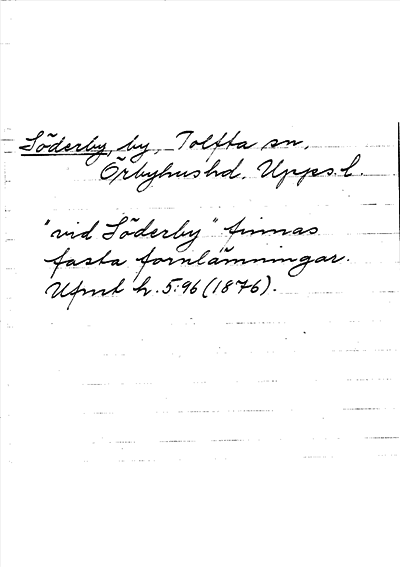 Söderby, by, Tolfta sn,
Örbyhushd. Upps.l.
"vid Söderby" finnas
fasta fornlämningar.
Ufmt h. 5:96 (1876).